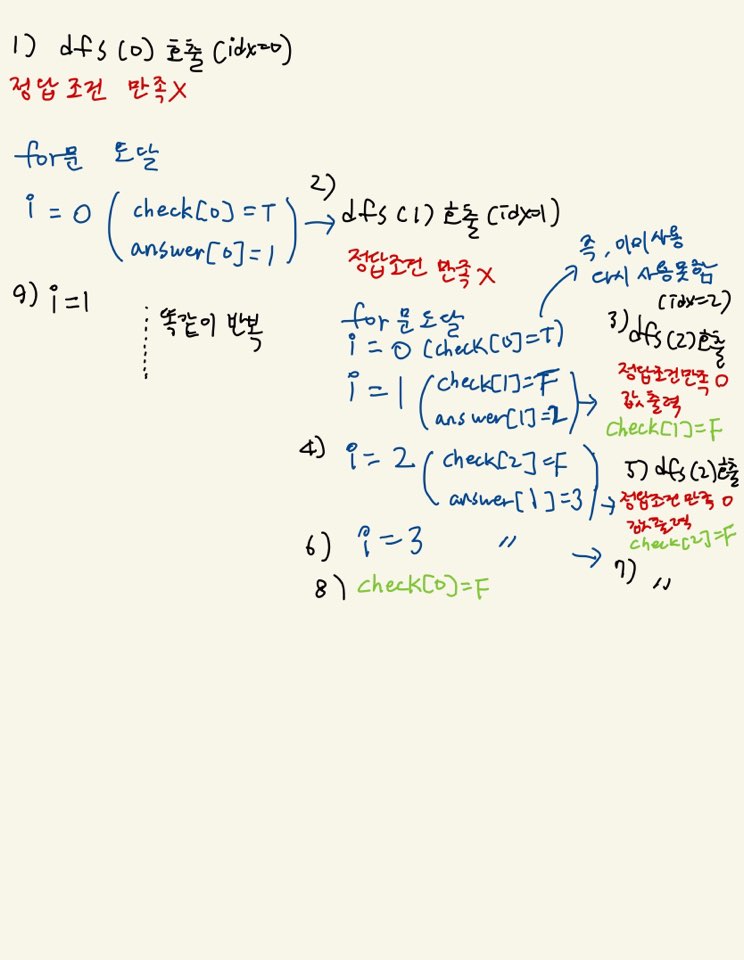 1) dfs(0) 호출 (idx=0)
정답 조건 만족X
for문 도달
i = 0 ( check[0]=T
answer[0]=1 ) →
2)
dfs(1) 호출 (idx=1)
정답조건 만족X
for문 도달
i = 0 (check[0]=T)
즉, 이미 사용
다시 사용못함
i = 1 ( check[1]=F
answer[1]=2 ) →
(idx=2)
3) dfs(2) 호출
정답조건만족 O
값 출력
check[1]=F
4) i = 2 ( check[2]=F
answer[1]=3 ) →
5) dfs(2) 호출
정답조건만족 O
값 출력
check[2]=F
6) i = 3 〃 →
7) 〃
8) check[0]=F
9) i=1
똑같이 반복